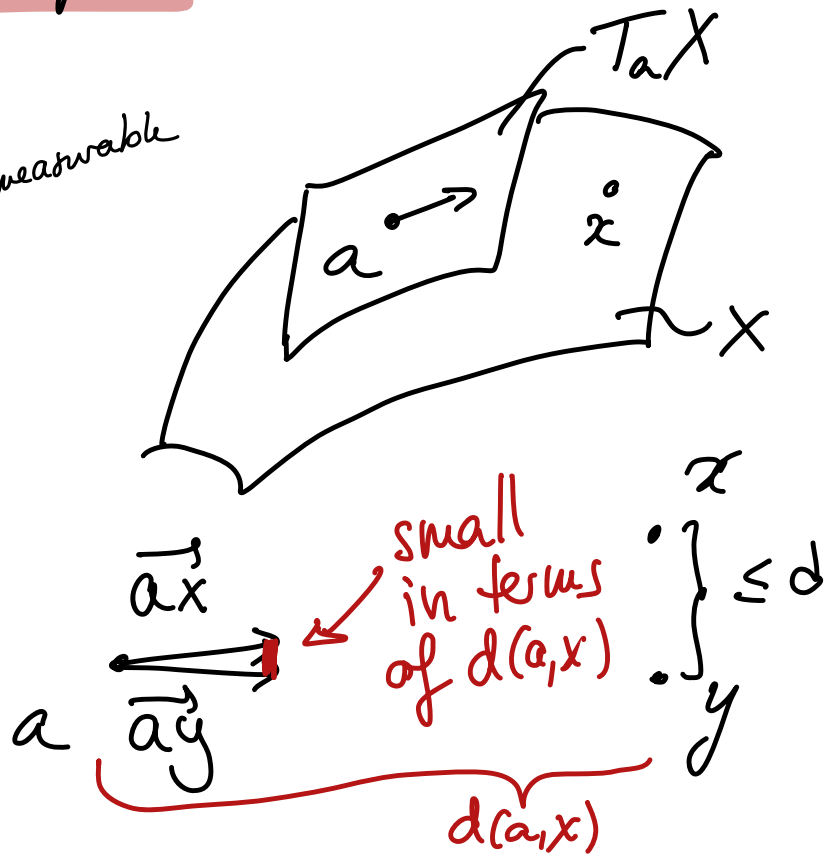 T_a X
measurable
a
x
X
x
\overrightarrow{ax}
small
in terms
of d(a,x)
≤ d
a
\overrightarrow{ay}
y
d(a,x)